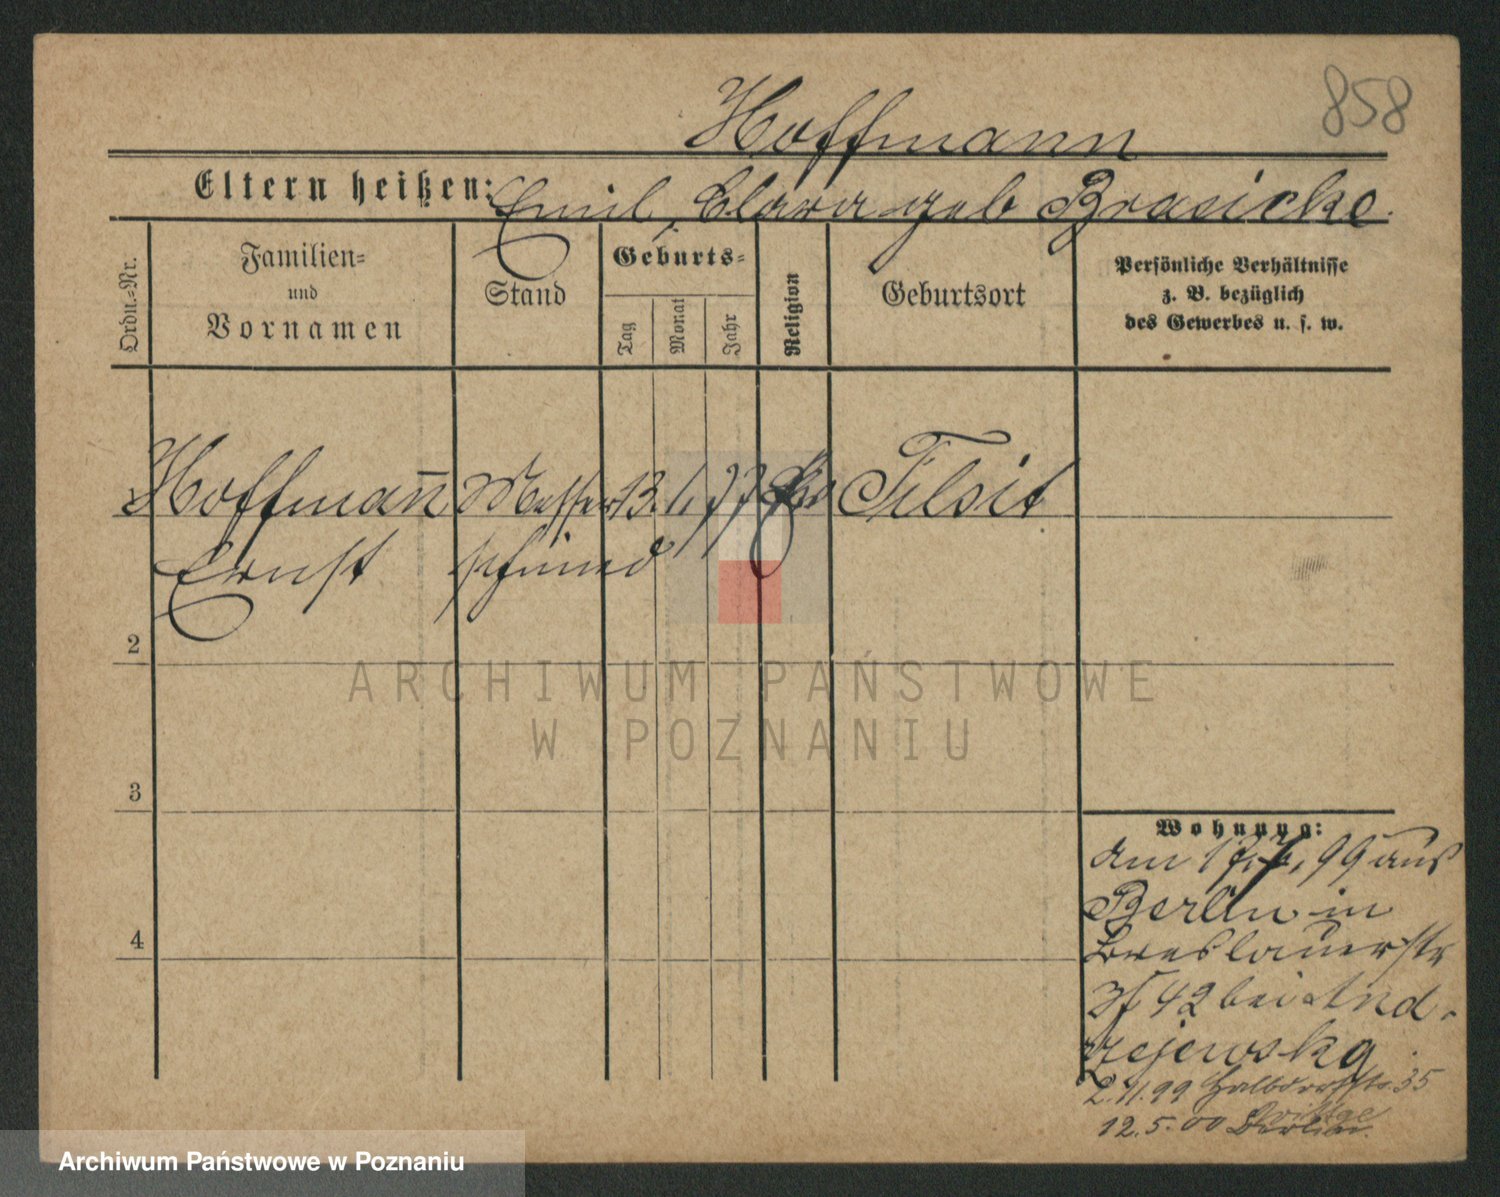 858
Hoffmann
Eltern heißen: Emil, Clara geb Brasicke.
Ordn.-Nr.
Familien-
und
Vornamen
Stand
Geburts-
Tag
Monat
Jahr
Religion
Geburtsort
Persönliche Verhältnisse
z. B. bezüglich
des Gewerbes u. s. w.
Hoffmann Messer 13. 1. 77 Tilsit
Ernst schmied
2
ARCHIWUM PAŃSTWOWE
W POZNANIU
3
4
Wohnung:
am 17. 7. 99 aus
Berlin in
Breslauerstr
42 bei And-
rzejewska
2. 11. 99 Halbdorfstr. 35
12. 5. 00 Berlin.
Archiwum Państwowe w Poznaniu